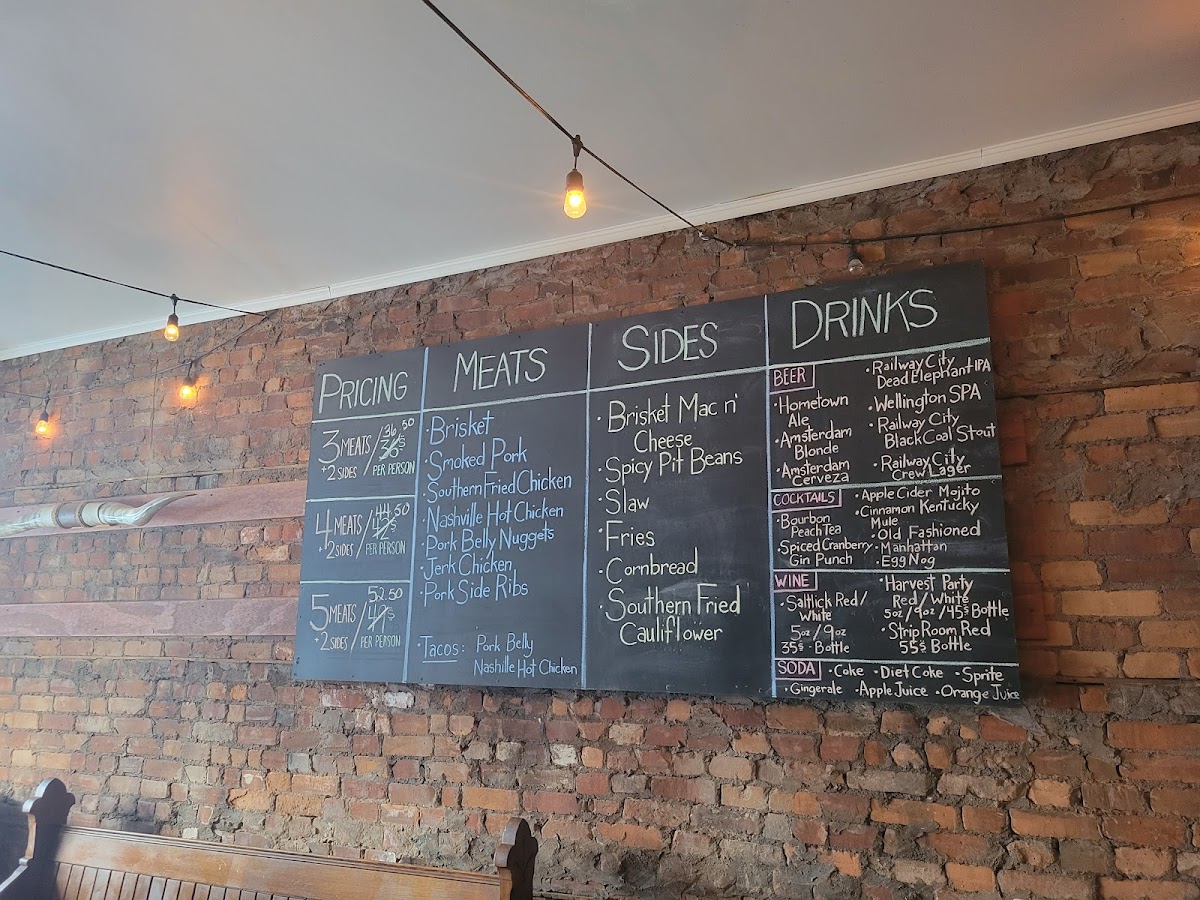 PRICING
3 MEATS / 36.50
+2 SIDES / PER PERSON
4 MEATS / 44.50
+2 SIDES / PER PERSON
5 MEATS / 52.50
+2 SIDES / PER PERSON
MEATS
· Brisket
· Smoked Pork
· Southern Fried Chicken
· Nashville Hot Chicken
· Pork Belly Nuggets
· Jerk Chicken
· Pork Side Ribs
· Tacos: Pork Belly
Nashille Hot Chicken
SIDES
· Brisket Mac n'
Cheese
· Spicy Pit Beans
· Slaw
· Fries
· Cornbread
· Southern Fried
Cauliflower
DRINKS
BEER
· Hometown
Ale
· Amsterdam
Blonde
· Amsterdam
Cerveza
· Railway City
Dead Elephant IPA
· Wellington SPA
· Railway City
Black Coal Stout
· Railway City
Crew Lager
COCKTAILS
· Bourbon
Peach Tea
· Spiced Cranberry
Gin Punch
· Apple Cider Mojito
· Cinnamon Kentucky
Mule
· Old Fashioned
· Manhattan
· Egg Nog
WINE
· Saltlick Red/
White
5oz/9oz
35$ - Bottle
· Harvest Party
Red/White
5oz/9oz/45$ Bottle
· Strip Room Red
55$ Bottle
SODA · Coke · Diet Coke · Sprite
· Gingerale · Apple Juice · Orange Juice